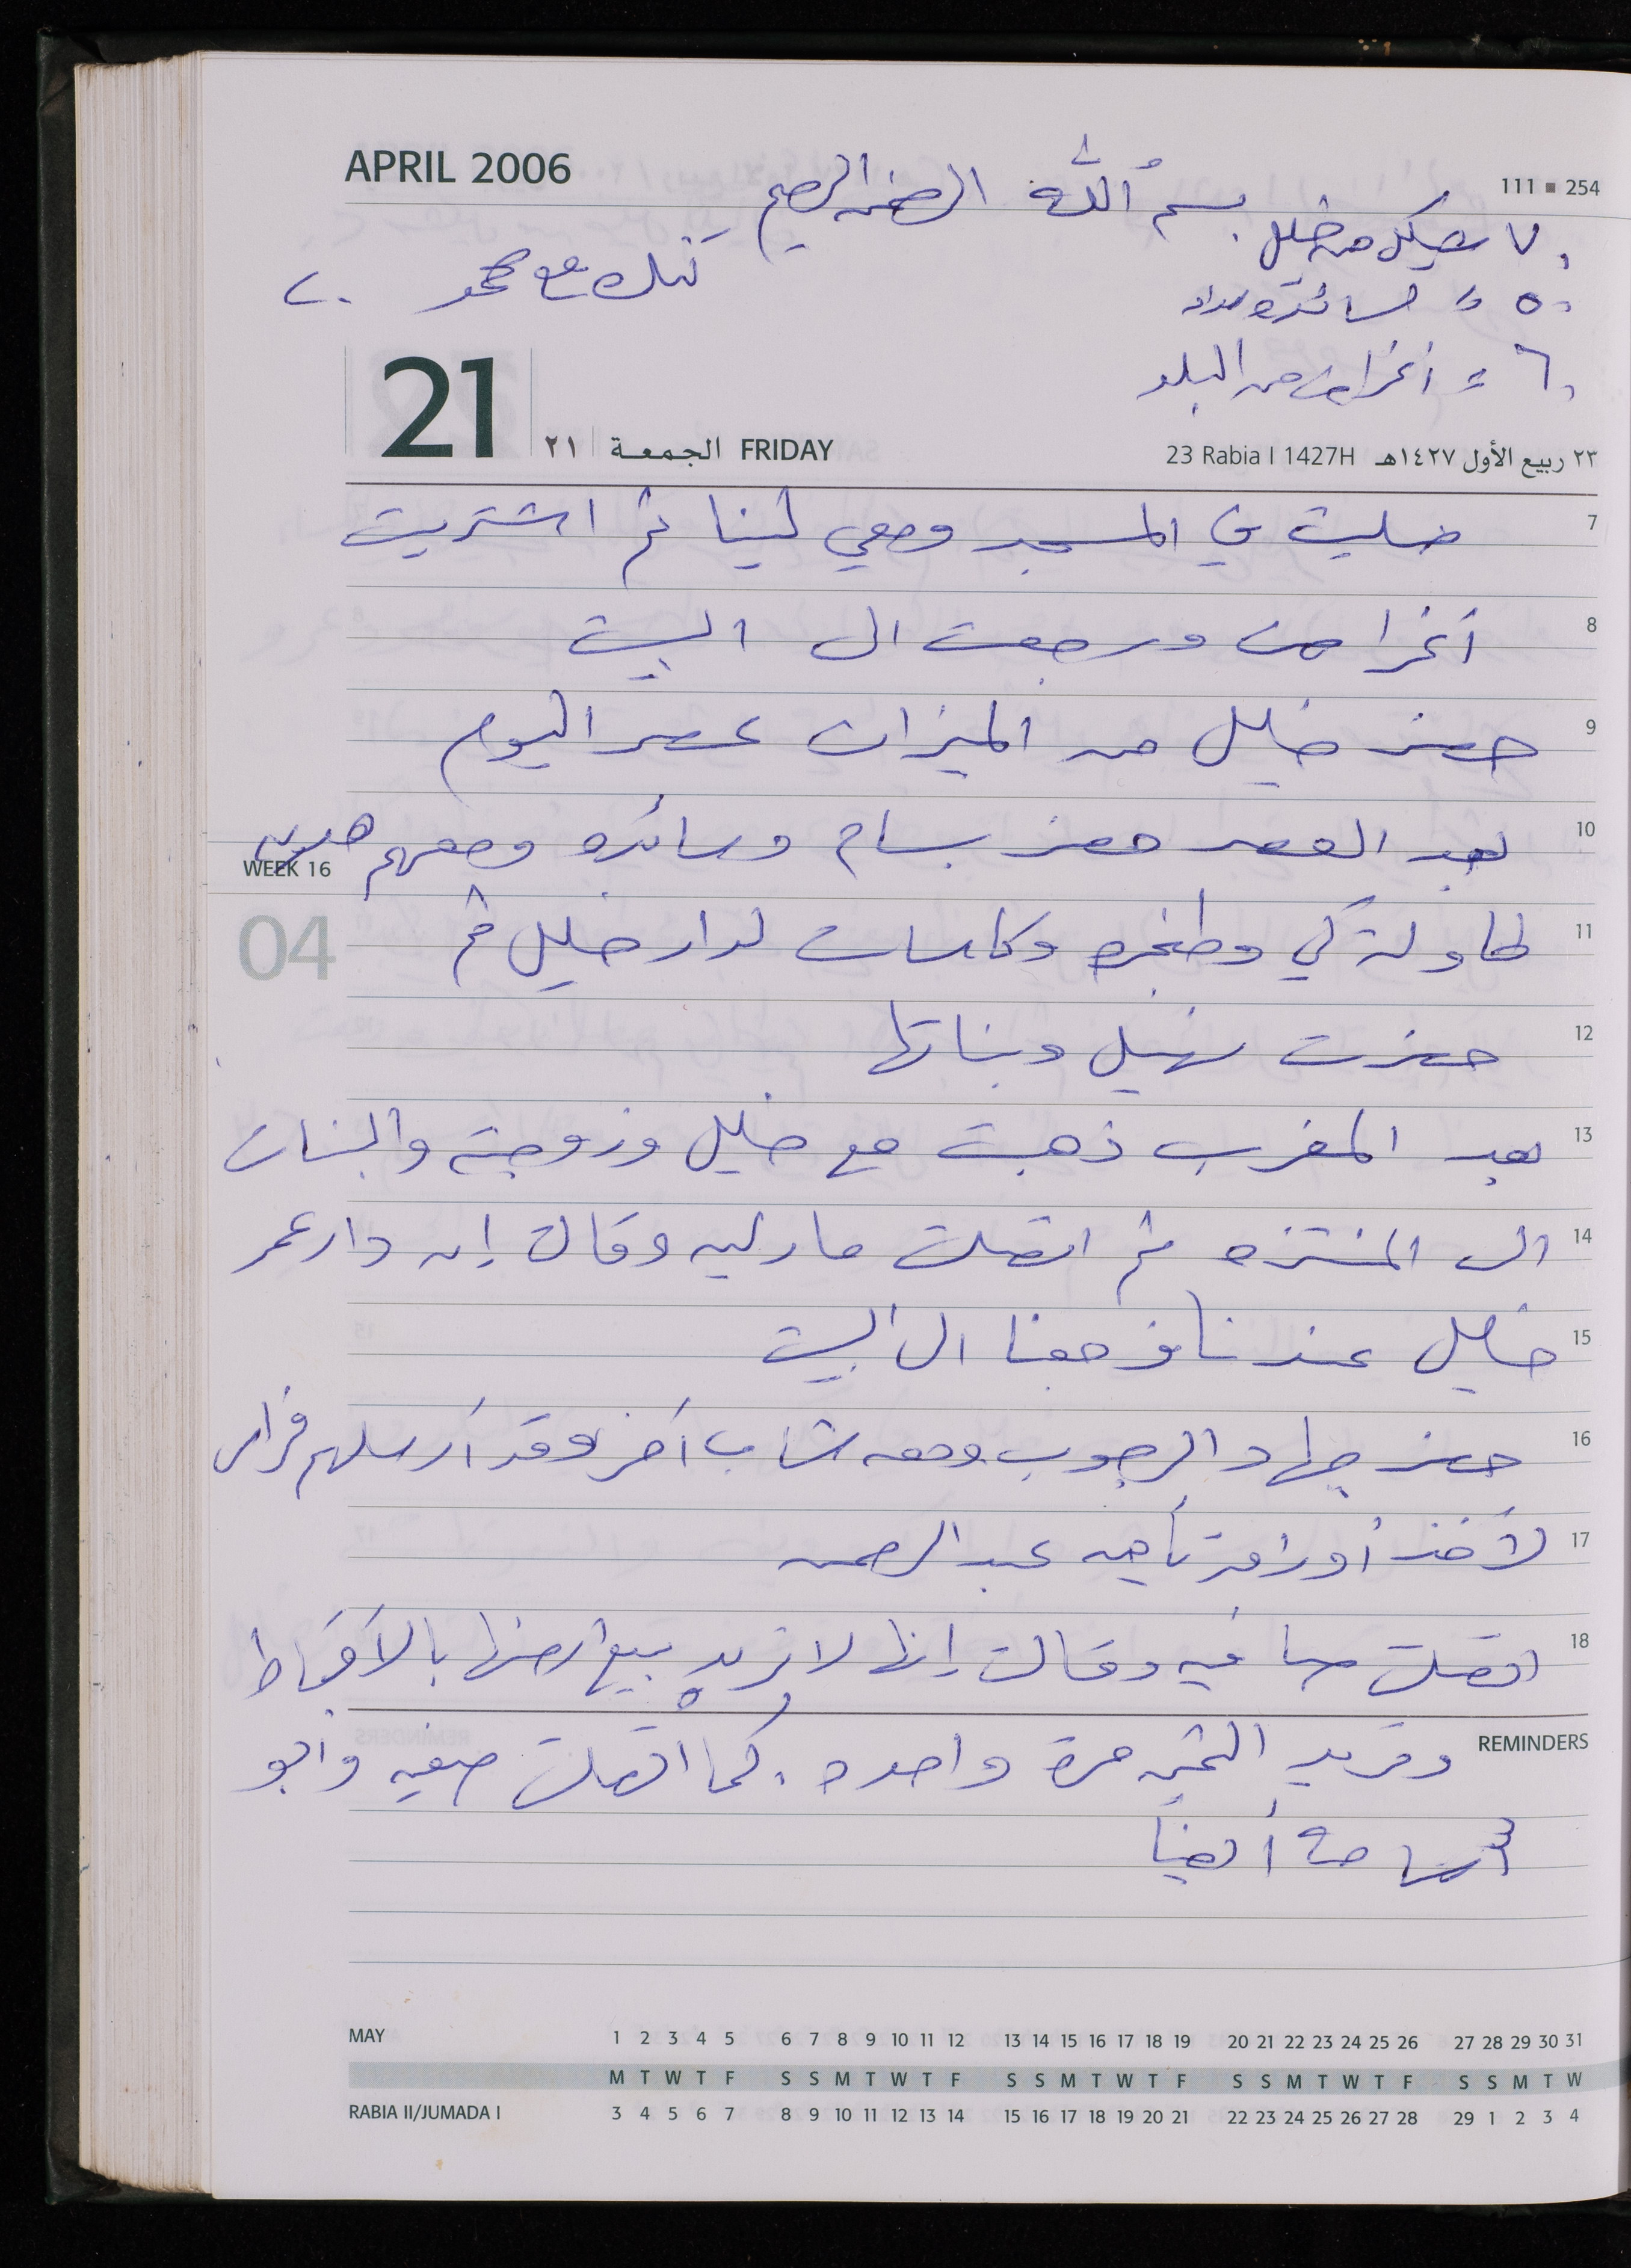 APRIL 2006
بسم الله الرحمن الرحيم
111 ▪ 254
٧٠ شيكل من خليل
٥٠ =
٦٠ = أغراض من البلد
مع محمد ٢٠
21
٢١ الجمعة FRIDAY
23 Rabia I 1427H ٢٣ ربيع الأول ١٤٢٧هـ
7 صليت في المسجد ومعي لينا ثم اشتريت
8 أغراض ورجعت الى البيت
9 حضر خليل من الميزان عصر اليوم
10 بعد العصر حضر بسام وسائده ومعهم هديه
WEEK 16
04
11 طاولة كي وطنجره وكاسات لدار خليل ثم
12 حضرت نهيل وبناتها
13 بعد المغرب ذهبت مع خليل وزوجته والبنات
14 الى المنتزه ثم اتصلت مادلين وقالت إن دار عمر
15 خليل عندنا فرجعنا الى البيت
16 حضر جهاد الرجوب ومعه شاب آخر وقد أرسلهم فراس
17 لأخذ أوراق تأمين عبد الرحمن
18 اتصلت صافيه وقالت إنها لا تريد بيع أرضها بالأقساط
REMINDERS
وتريد الثمن مرة واحده. كما اتصلت صفيه وابو
أيضاً
MAY 1 2 3 4 5 6 7 8 9 10 11 12 13 14 15 16 17 18 19 20 21 22 23 24 25 26 27 28 29 30 31
M T W T F S S M T W T F S S M T W T F S S M T W T F S S M T W
RABIA II/JUMADA I 3 4 5 6 7 8 9 10 11 12 13 14 15 16 17 18 19 20 21 22 23 24 25 26 27 28 29 1 2 3 4